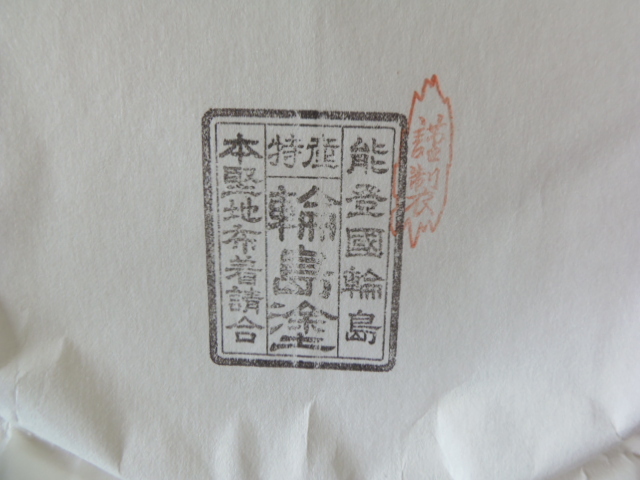 謹製
能登國輪島
特産
輪島塗
本堅地布着請合